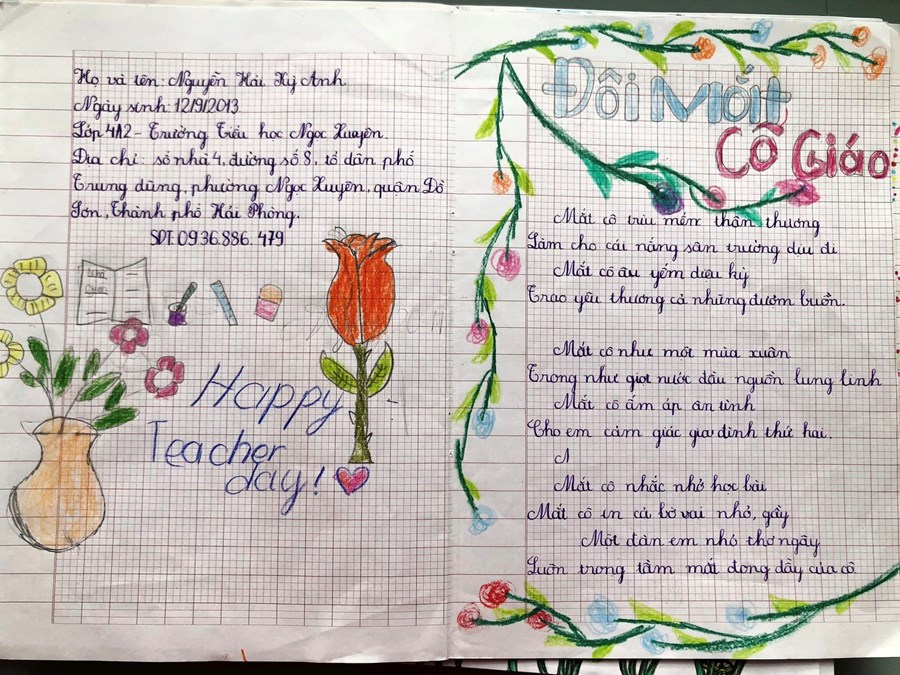 Họ và tên: Nguyễn Hải Kỳ Anh
Ngày sinh 12/9/2013
Lớp 4A2 - Trường Tiểu học Ngọc Xuyên.
Địa chỉ: số nhà 4, đường số 8, tổ dân phố
Trung dũng, phường Ngọc Xuyên, quận Đồ
Sơn, Thành phố Hải Phòng.
SĐT: 0936.886.479
Happy
Teacher
day!
Đôi Mắt
Cô Giáo
Mắt cô trìu mến thân thương
Làm cho cái nắng sân trường dịu đi
Mắt cô âu yếm diệu kỳ
Trao yêu thương cả những đượm buồn.
Mắt cô như một mùa xuân
Trong như giọt nước đầu nguồn lung linh
Mắt cô ấm áp ân tình
Cho em cảm giác gia đình thứ hai.
Mắt cô nhắc nhở học bài
Mắt cô in cả bờ vai nhỏ, gầy
Một đàn em nhỏ thơ ngây
Luôn trong tầm mắt đong đầy của cô.